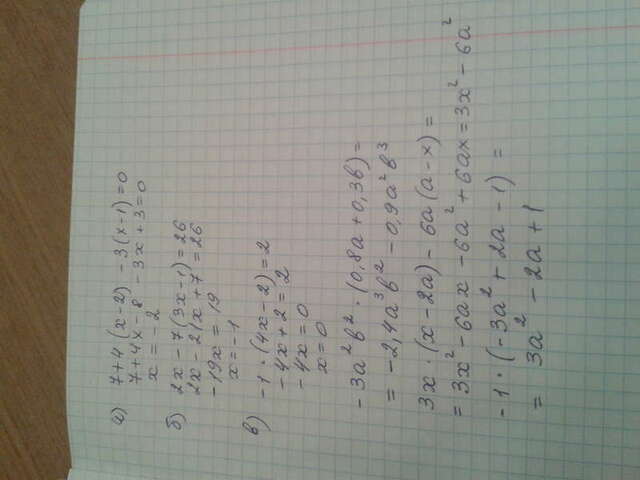 а) 7+4(x-2)-3(x-1)=0
7+4x-8-3x+3=0
x=-2
б) 2x-7(3x-1)=26
2x-21x+7=26
-19x=19
x=-1
в) -1·(4x-2)=2
-4x+2=2
-4x=0
x=0
-3a²b²·(0,8a+0,3b)=
=-2,4a³b²-0,9a²b³
3x·(x-2a)-6a(a-x)=
=3x²-6ax-6a²+6ax=3x²-6a²
-1·(-3a²+2a-1)=
=3a²-2a+1